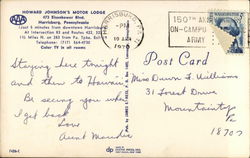 HOWARD JOHNSON'S MOTOR LODGE
473 Eisenhower Blvd.
Harrisburg, Pennsylvania
Just 6 minutes from downtown Harrisburg
At intersection 83 and Routes 422, 322,
1½ Miles N. on 283 from Pa. Tpke. Exit
Telephone: (717) 564-4730
Color TV in all rooms
AAA
HARRISBURG
PM
1970
150TH
ON-CAMPU
ARMY
WASHINGTON
Post Card
Staying here tonight
and then to Hawaii
Be seeing you when
I get back
Love
Aunt
Miss Dawn L. Williams
31 Forest Drive
Mountaintop
Pa
18707